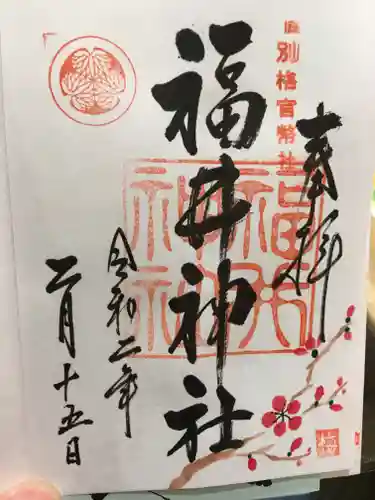 奉拝
旧別格官幣社
福井神社
令和二年
二月十五日
福井
神社